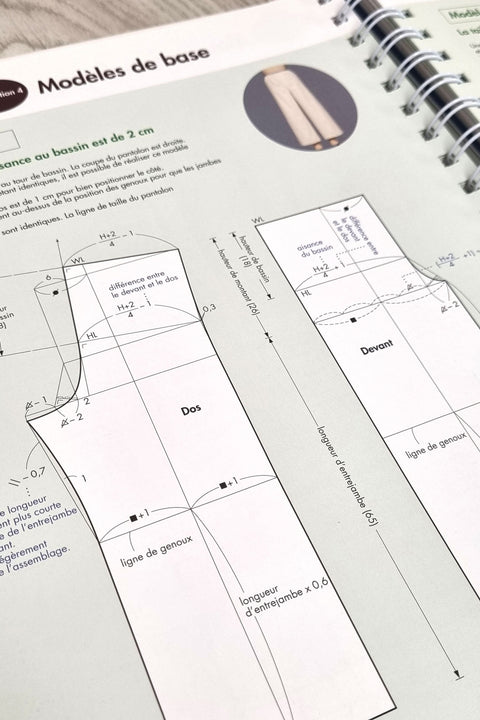 tion 4
Modèles de base
sance au bassin est de 2 cm
au tour de bassin. La coupe du pantalon est droite.
tant identiques, il est possible de réaliser ce modèle
os est de 1 cm pour bien positionner le côté.
ent au-dessus de la position des genoux pour que les jambes
sont identiques. La ligne de taille du pantalon
H+2
4
- 1
WL
6
différence entre
le devant et le dos
H+2
4
- 1
0,3
HL
- 1
2
- 2
Dos
- 0,7
1
e longueur
ent plus courte
e de l'entrejambe
ant.
égèrement
e l'assemblage.
■+1
■+1
ligne de genoux
longueur
d'entrejambe x 0,6
hauteur de montant (26)
hauteur de bassin
(18)
longueur d'entrejambe (65)
WL
différence entre
le devant
et le dos
aisance
du bassin
H+2
4
HL
H+2
4
+1
- 2
Devant
ligne de genoux
Modèl
La tai